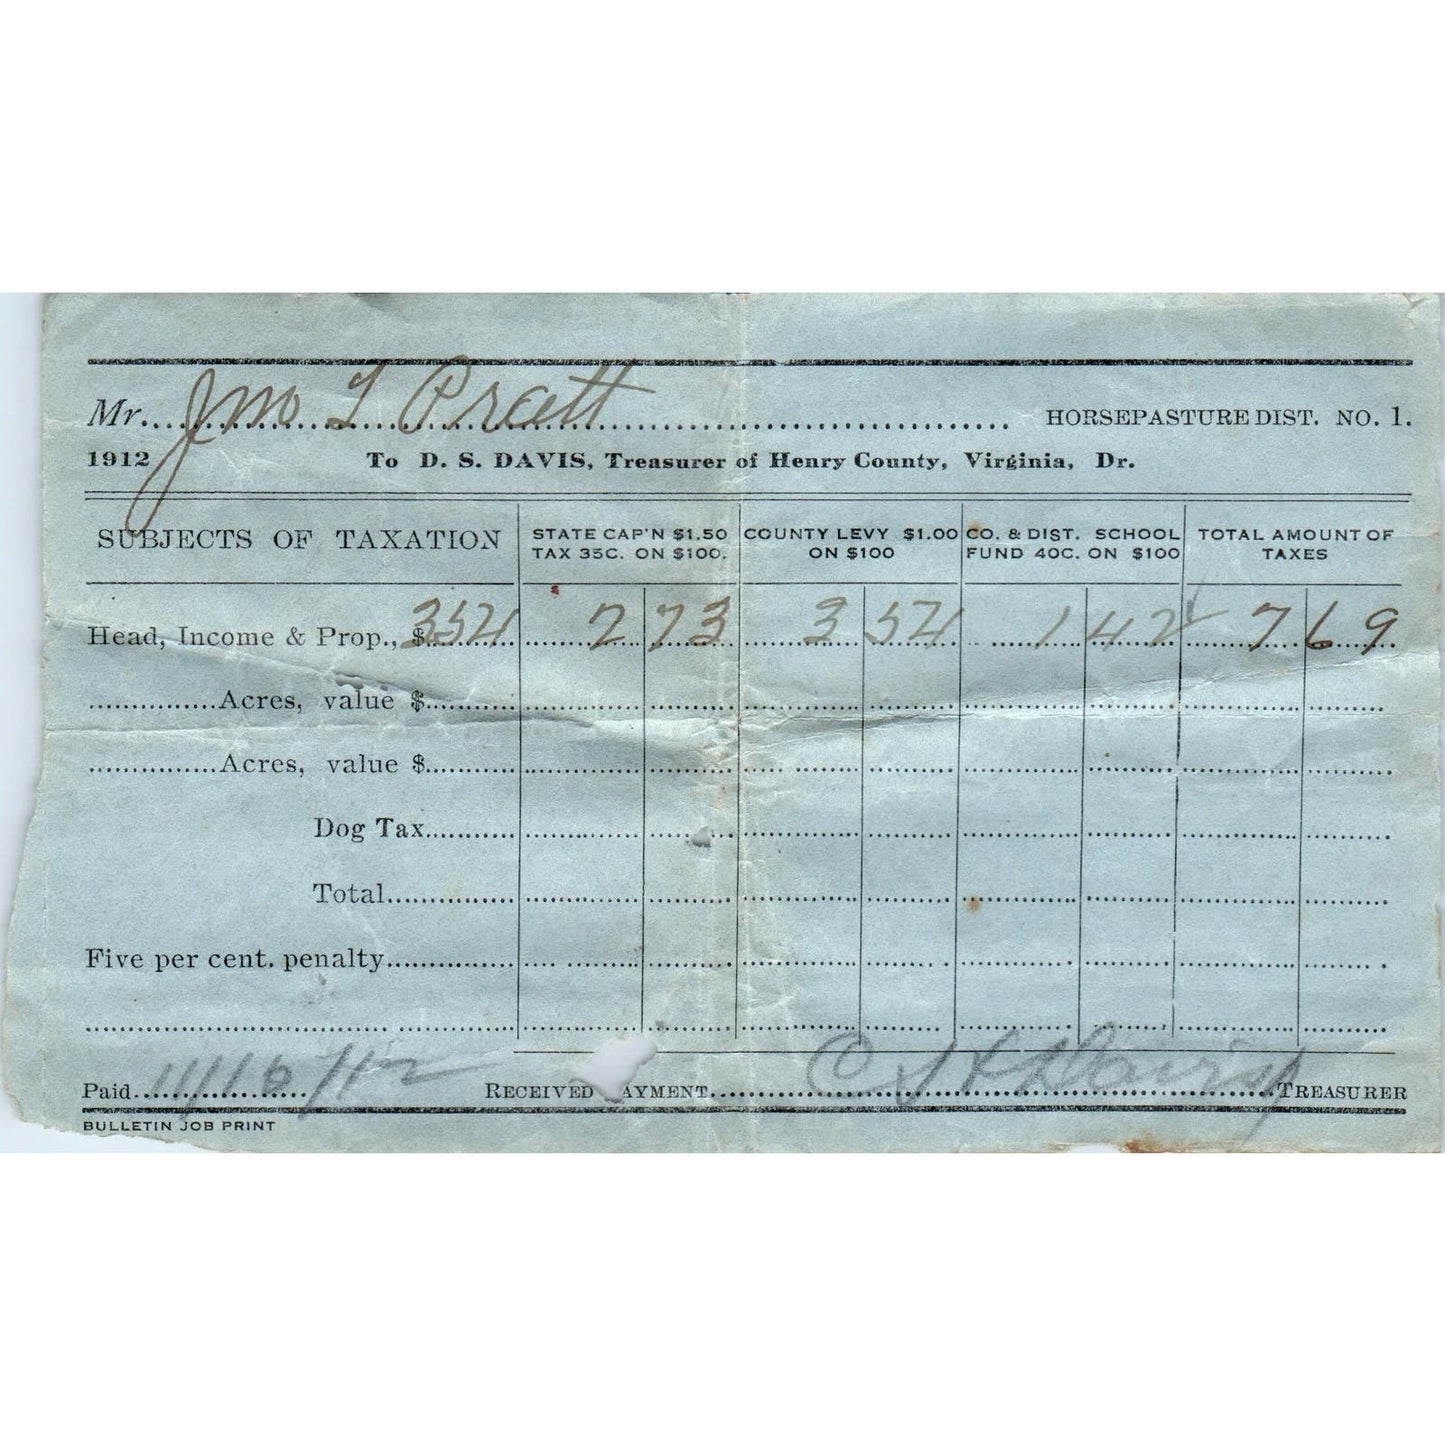 Mr. Jno L Pratt HORSEPASTURE DIST. NO. 1.
1912 To D. S. DAVIS, Treasurer of Henry County, Virginia, Dr.
SUBJECTS OF TAXATION STATE CAP'N $1.50 TAX 35C. ON $100. COUNTY LEVY $1.00 ON $100 CO. & DIST. SCHOOL FUND 40C. ON $100 TOTAL AMOUNT OF TAXES
Head, Income & Prop., $ 354 2 73 3 54 1 42 7 69
Acres, value $
Acres, value $
Dog Tax
Total
Five per cent. penalty
Paid 11/16/12 RECEIVED PAYMENT Davis TREASURER
BULLETIN JOB PRINT